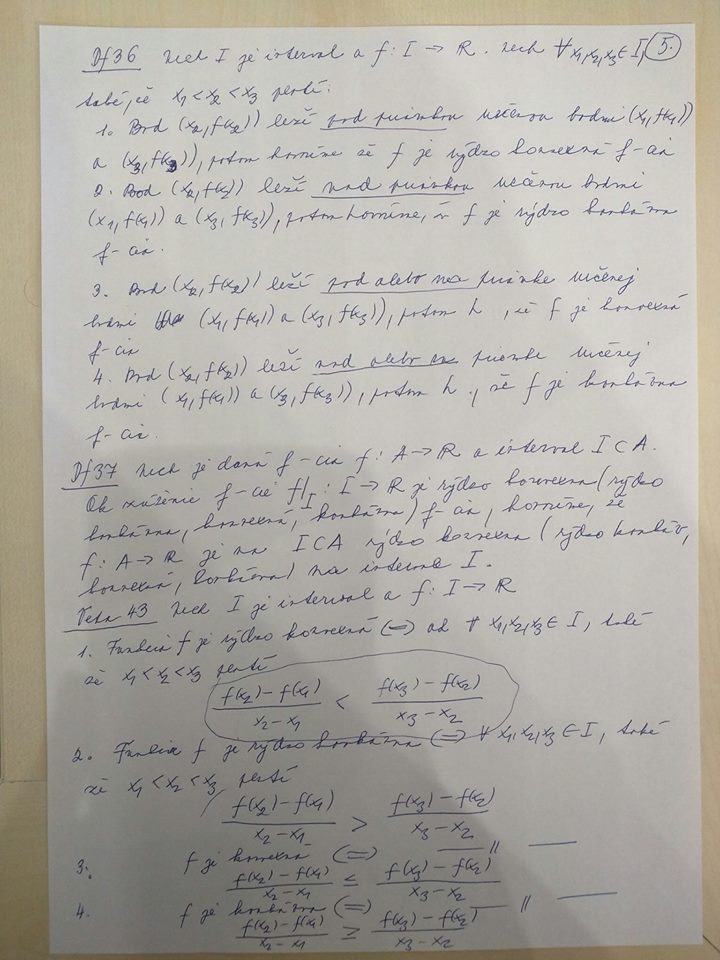 Df 36 Nech I je interval a f: I → R. Nech ∀ x₁,x₂,x₃ ∈ I, 5.
také, že x₁ < x₂ < x₃ platí:
1. Bod (x₂, f(x₂)) leží pod priamkou určenou bodmi (x₁, f(x₁))
a (x₃, f(x₃)), potom hovoríme že f je rýdzo konvexná f-cia
2. Bod (x₂, f(x₂)) leží nad priamkou určenou bodmi
(x₁, f(x₁)) a (x₃, f(x₃)), potom hovoríme, že f je rýdzo konkávna
f-cia.
3. Bod (x₂, f(x₂)) leží pod alebo na priamke určenej
bodmi (x₁, f(x₁)) a (x₃, f(x₃)), potom h , že f je konvexná
f-cia
4. Bod (x₂, f(x₂)) leží nad alebo na priamke určenej
bodmi (x₁, f(x₁)) a (x₃, f(x₃)), potom h., že f je konkávna
f-cia.
Df 37 Nech je daná f-cia f: A → R a interval I ⊂ A.
Ak zúženie f-cie f|_I : I → R je rýdzo konvexna (rýdzo
konkávna, konvexná, konkávna) f-cia, hovoríme, že
f: A → R je na I ⊂ A rýdzo konvexna (rýdzo konkáv,
konvexná, konkávna) na intervale I.
Veta 43 Nech I je interval a f: I → R
1. Funkcia f je rýdzo konvexná ⇔ ak ∀ x₁,x₂,x₃ ∈ I, také
že x₁ < x₂ < x₃ platí
(f(x₂) − f(x₁))/(x₂ − x₁) < (f(x₃) − f(x₂))/(x₃ − x₂)
2. Funkcia f je rýdzo konkávna ⇔ ∀ x₁,x₂,x₃ ∈ I, také
že x₁ < x₂ < x₃ platí
(f(x₂) − f(x₁))/(x₂ − x₁) > (f(x₃) − f(x₂))/(x₃ − x₂)
3. f je konvexná ⇔ — ıı —
(f(x₂) − f(x₁))/(x₂ − x₁) ≤ (f(x₃) − f(x₂))/(x₃ − x₂)
4. f je konkávna ⇔ — ıı —
(f(x₂) − f(x₁))/(x₂ − x₁) ≥ (f(x₃) − f(x₂))/(x₃ − x₂)